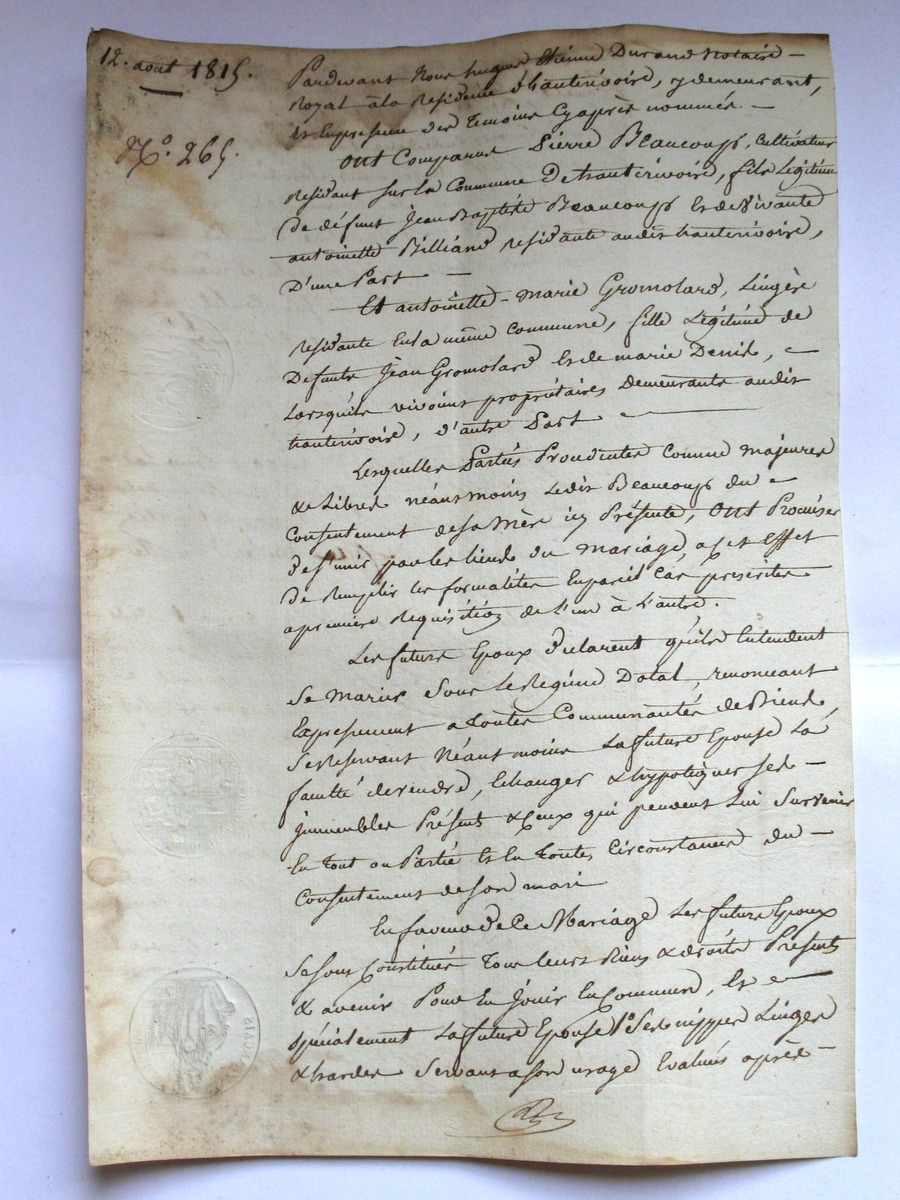 12. août 1815.
N.° 265.
Pardevant Nous hugues Etienne Durand Notaire
Royal à la Residence d'hauterivoire, y demeurant,
et En presence des temoins Cy après nommés.
Ont Comparus Pierre Beaucoup, Cultivateur
Residant sur la Commune D'hauterivoire, fils Légitime
De défunt Jean Baptiste Beaucoup et de Vivante
antoinette Billiand residante audit hauterivoire,
D'une Part
Et antoinette-marie Gromolard, Lingère
residante En la même Commune, fille Légitime de
Defunts Jean Gromolard et de marie Denis,
Lorsqu'ils vivoint propriétaires Demeurants audit
hauterivoire, d'autre Part
Lesquelles Parties Procedantes Comme majeures
& Libres néansmoins Ledit Beaucoup du
Consentement de sa Mère icy Présente, Ont Promises
de s'unir par les liends du Mariage, a cet Effet
De Remplir les formalités En pareil Cas prescrites
a premiere Requisition de L'un à L'autre.
Les futurs Epoux Déclarent qu'ils Entendent
Se Marier Sous Le Regime Dotal, renonceant
Expressement a toutes Communautés de Biens,
Se Reservant Néantmoins La future Epouse La
faculté de vendre, Echanger & hypotequer ses
immeubles Présents & Ceux qui peuvent Lui Survenir
En tout ou Partie et En toutes Circonstances du
Consentement de son mari
En faveur De Ce Mariage Les futurs Epoux
Se sont Constitués tous leurs Biens & droits Présents
& avenir Pour En Jouir En Commun, Et
spécialement La future Epouse 1° Ses nippes Linges
& hardes Servant a son usage Evalués après